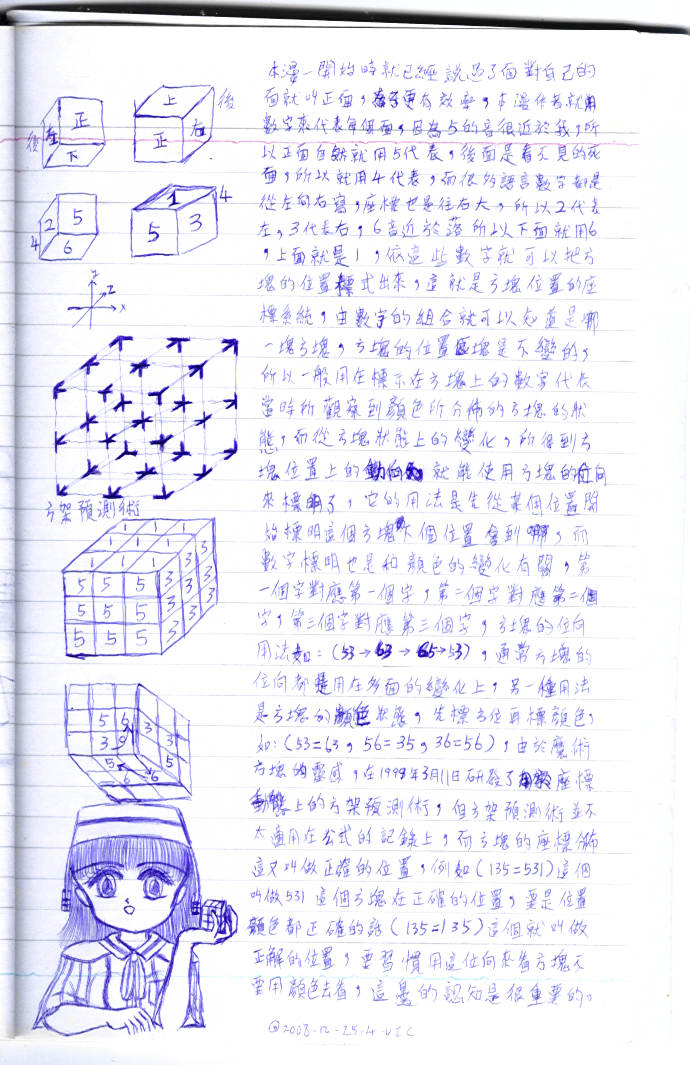 正
左
後
下
上
後
正
右
2
5
4
6
1
4
5
3
Z
X
方架預測術
1 1 1
1 1 1
1 1 1
5 5 5 3 3 3
5 5 5 3 3 3
5 5 5 3 3 3
5 5 3
3
5 6 6 5
本漫一開始時就已經說過了面對自己的
面就叫正面,為了更有效率,本漫作者就用
數字來代表每個面,因為5的音很近於我,所
以正面自然就用5代表,後面是看不見的死
面,所以就用4代表,而很多語言數字都是
從左向右寫,座標也是往右大,所以2代表
左,3代表右,6音近於落所以下面就用6
,上面就是1,依這些數字就可以把方
塊的位置標式出來,這就是方塊位置的座
標系統,由數字的組合就可以知道是哪
一塊方塊,方塊的位置區塊是不變的,
所以一般用在標示在方塊上的數字代表
當時所觀察到顏色所分佈的方塊的狀
態,而從方塊狀態上的變化,所得到方
塊位置上的動向 就能使用方塊的位向
來標明了,它的用法是先從某個位置開
始標明這個方塊 個位置 到哪,而
數字標明也是和顏色的變化有關,第
一個字對應第一個字,第二個字對應第二個
字,第三個字對應第三個字,方塊的位向
用法如:(53→63→65→53),通常方塊的
位向都是用在多面的變化上,另一種用法
是方塊的顏色狀態,先標方位再標顏色,
如:(53=63,56=35,36=56),由於魔術
方塊的靈感,在1999年3月11日研發了 座標
動態上的方架預測術,但方架預測術並不
太適用在公式的記錄上,而方塊的座標分佈
這又叫做正確的位置,例如(135=531)這個
叫做531這個方塊在正確的位置,要是位置
顏色都正確的話(135=135)這個就叫做
正解的位置,要習慣用這位向來看方塊不
要用顏色去看,這 的認知是很重要的。
@2008-12-25-4-VIC